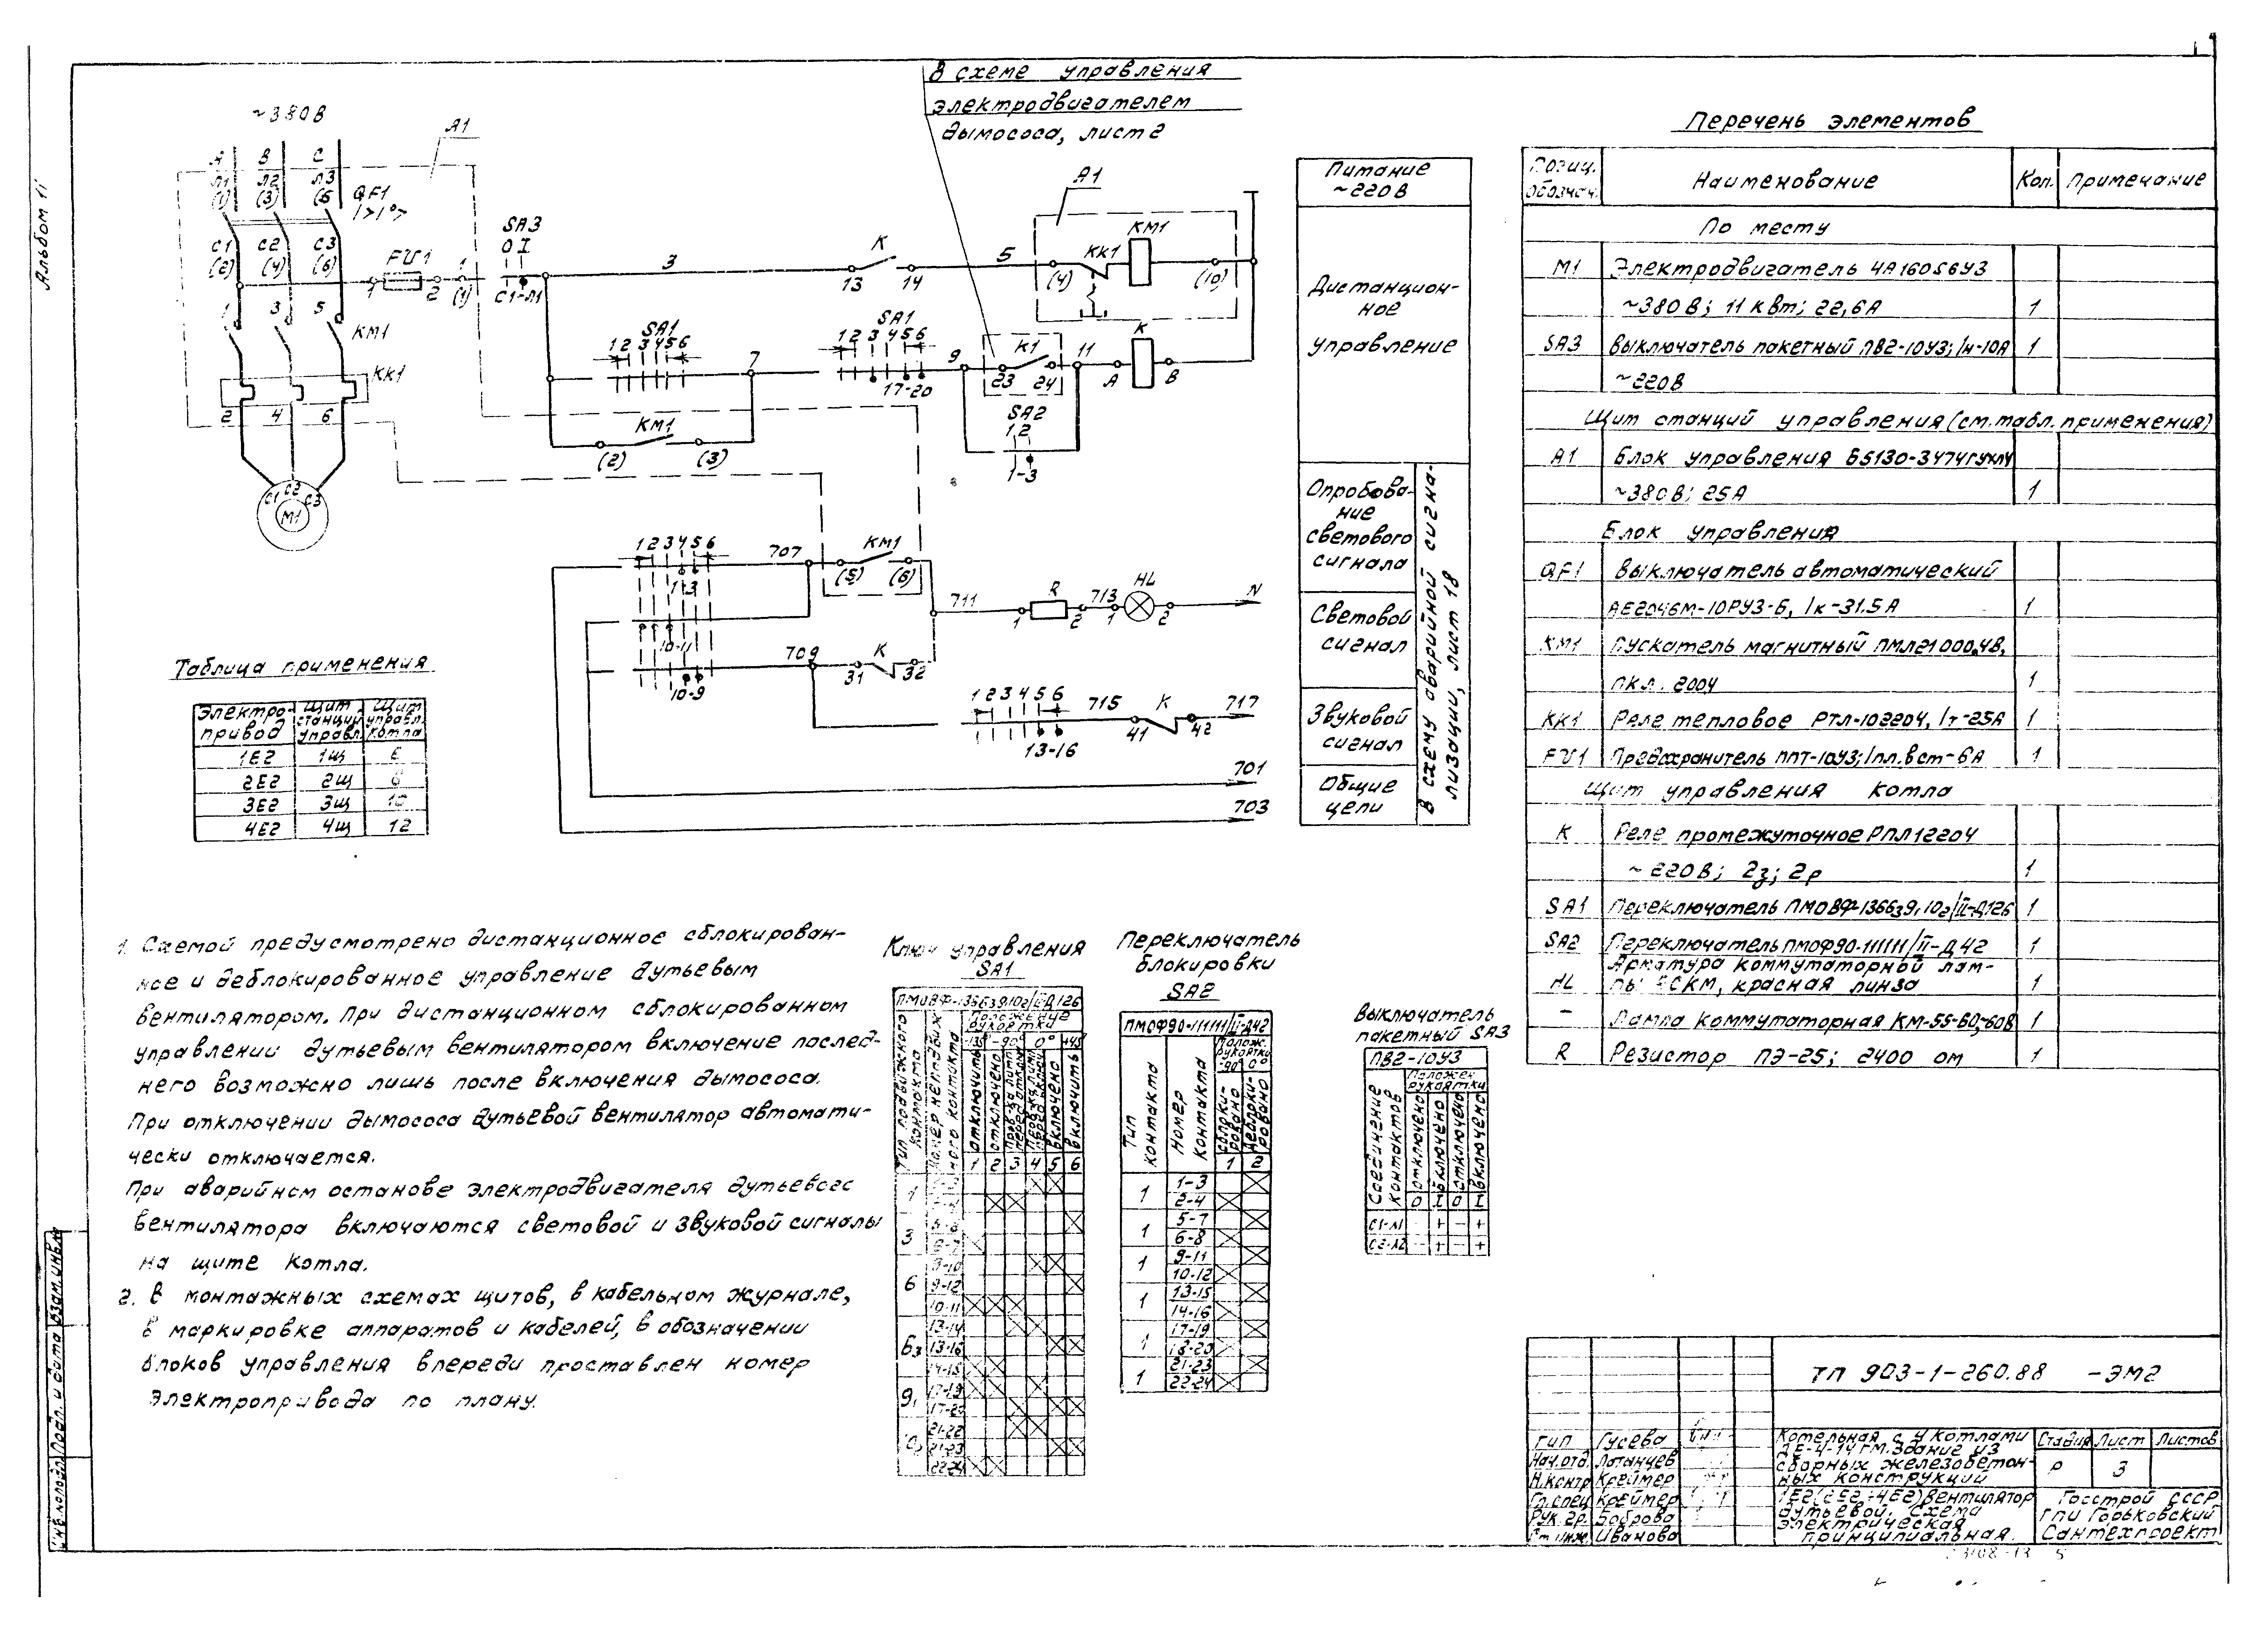 Альбом 11
В схеме управления
электродвигателем
дымососа, лист 2
~380В
A1
А В С
Л1 Л2 Л3
(1) (3) (5)
QF1
С1 С2 С3
(2) (4) (6)
FU1
1 2
1
(1)
SA3
0 I
С1-Л1
3
К
13 14
5
A1
(4)
КК1
КМ1
(10)
1 3 5
КМ1
КК1
2 4 6
С1 С2 С3
М1
SA1
1 2 3 4 5 6
7
SA1
1 2 3 4 5 6
17-20
9
К1
23 24
11
А
К
В
SA2
1 2
1-3
КМ1
(2) (3)
1 2 3 4 5 6
1-3
707
КМ1
(5) (6)
10-11
711
R
1 2
713
HL
1 2
N
10-9
709
К
31 32
1 2 3 4 5 6
13-16
715
К
41 42
717
701
703
Питание
~220В
Дистанцион-
ное
управление
Опробова-
ние
светового
сигнала
Световой
сигнал
Звуковой
сигнал
Общие
цепи
В схему аварийной сигна-
лизации, лист 18
Таблица применения
Электро-
привод
Щит
станций
управл.
Щит
управл.
котла
1Е2 1щ
2Е2 2щ
3Е2 3щ
4Е2 4щ 12
1. Схемой предусмотрено дистанционное сблокирован-
ное и деблокированное управление дутьевым
вентилятором. При дистанционном сблокированном
управлении дутьевым вентилятором включение послед-
него возможно лишь после включения дымососа.
При отключении дымососа дутьевой вентилятор автомати-
чески отключается.
При аварийном останове электродвигателя дутьевого
вентилятора включаются световой и звуковой сигналы
на щите котла.
2. В монтажных схемах щитов, в кабельном журнале,
в маркировке аппаратов и кабелей, в обозначении
блоков управления впереди проставлен номер
электропривода по плану.
Ключ управления
SA1
ПМОВФ-136639102/II-Д126
Тип подвижного
контакта
Номер неподвиж
ного контакта
Положение
рукоятки
-135° -90° 0° +45°
отключить
отключено
включено
включить
1 2 3 4 5 6
1
3
6
10-11
13-14
13-16
14-15
17-19
17-20
21-22
21-23
22-24
Переключатель
блокировки
SA2
ПМОФ90-111111/II-Д42
Тип
контакта
Номер
контакта
Полож.
рукоятки
-90° 0°
сблоки-
ровано
деблоки-
ровано
1 2
1 1-3
2-4
1 5-7
6-8
1 9-11
10-12
1 13-15
14-16
1 17-19
18-20
1 21-23
22-24
Выключатель
пакетный SA3
ПВ2-10У3
Соединение
контактов
Положен
рукоятки
отключено
включено
отключено
включено
0 I 0 I
С1-Л1 - + - +
С2-Л2 - + - +
Перечень элементов
Позиц.
обознач.
Наименование
Кол. Примечание
По месту
М1 Электродвигатель 4А160S6У3
~380В; 11 кВт; 22,6А 1
SA3 Выключатель пакетный ПВ2-10У3; Iн-10А 1
~220В
Щит станций управления (см. табл. применения)
А1 Блок управления Б5130-3474ГУХЛ4
~380В; 25А 1
Блок управления
QF1 Выключатель автоматический
АЕ2046М-10РУ3-Б, Iк-31.5А 1
КМ1 Пускатель магнитный ПМЛ21000,4В,
ПКЛ.2004 1
КК1 Реле тепловое РТЛ-102204, Iт-25А 1
FU1 Предохранитель ППТ-10У3; Iпл.вст-6А 1
Щит управления котла
К Реле промежуточное РПЛ12204
~220В; 2з; 2р 1
SA1 Переключатель ПМОВФ-136639,102/II-Д126 1
SA2 Переключатель ПМОФ90-111111/II-Д42 1
Арматура коммутаторной лам-
HL пы СКМ, красная линза 1
- Лампа коммутаторная КМ-55-60,-60В 1
R Резистор ПЭ-25; 2400 ом 1
ТП 903-1-260.88 -ЭМ2
ГИП Гусева
Нач.отд. Лотанцев
Н.контр Креймер
Гл.спец Креймер
Рук.гр. Боброва
Ст.инж. Иванова
Котельная с 4 котлами
ДЕ-4-14ГМ. Здание из
сборных железобетон-
ных конструкций
Стадия Лист Листов
Р 3
1Е2(2Е2÷4Е2) Вентилятор
дутьевой. Схема
электрическая
принципиальная.
Госстрой СССР
ГПИ Горьковский
Сантехпроект
Взам.инв.№
Подп. и дата
Инв.№подл.